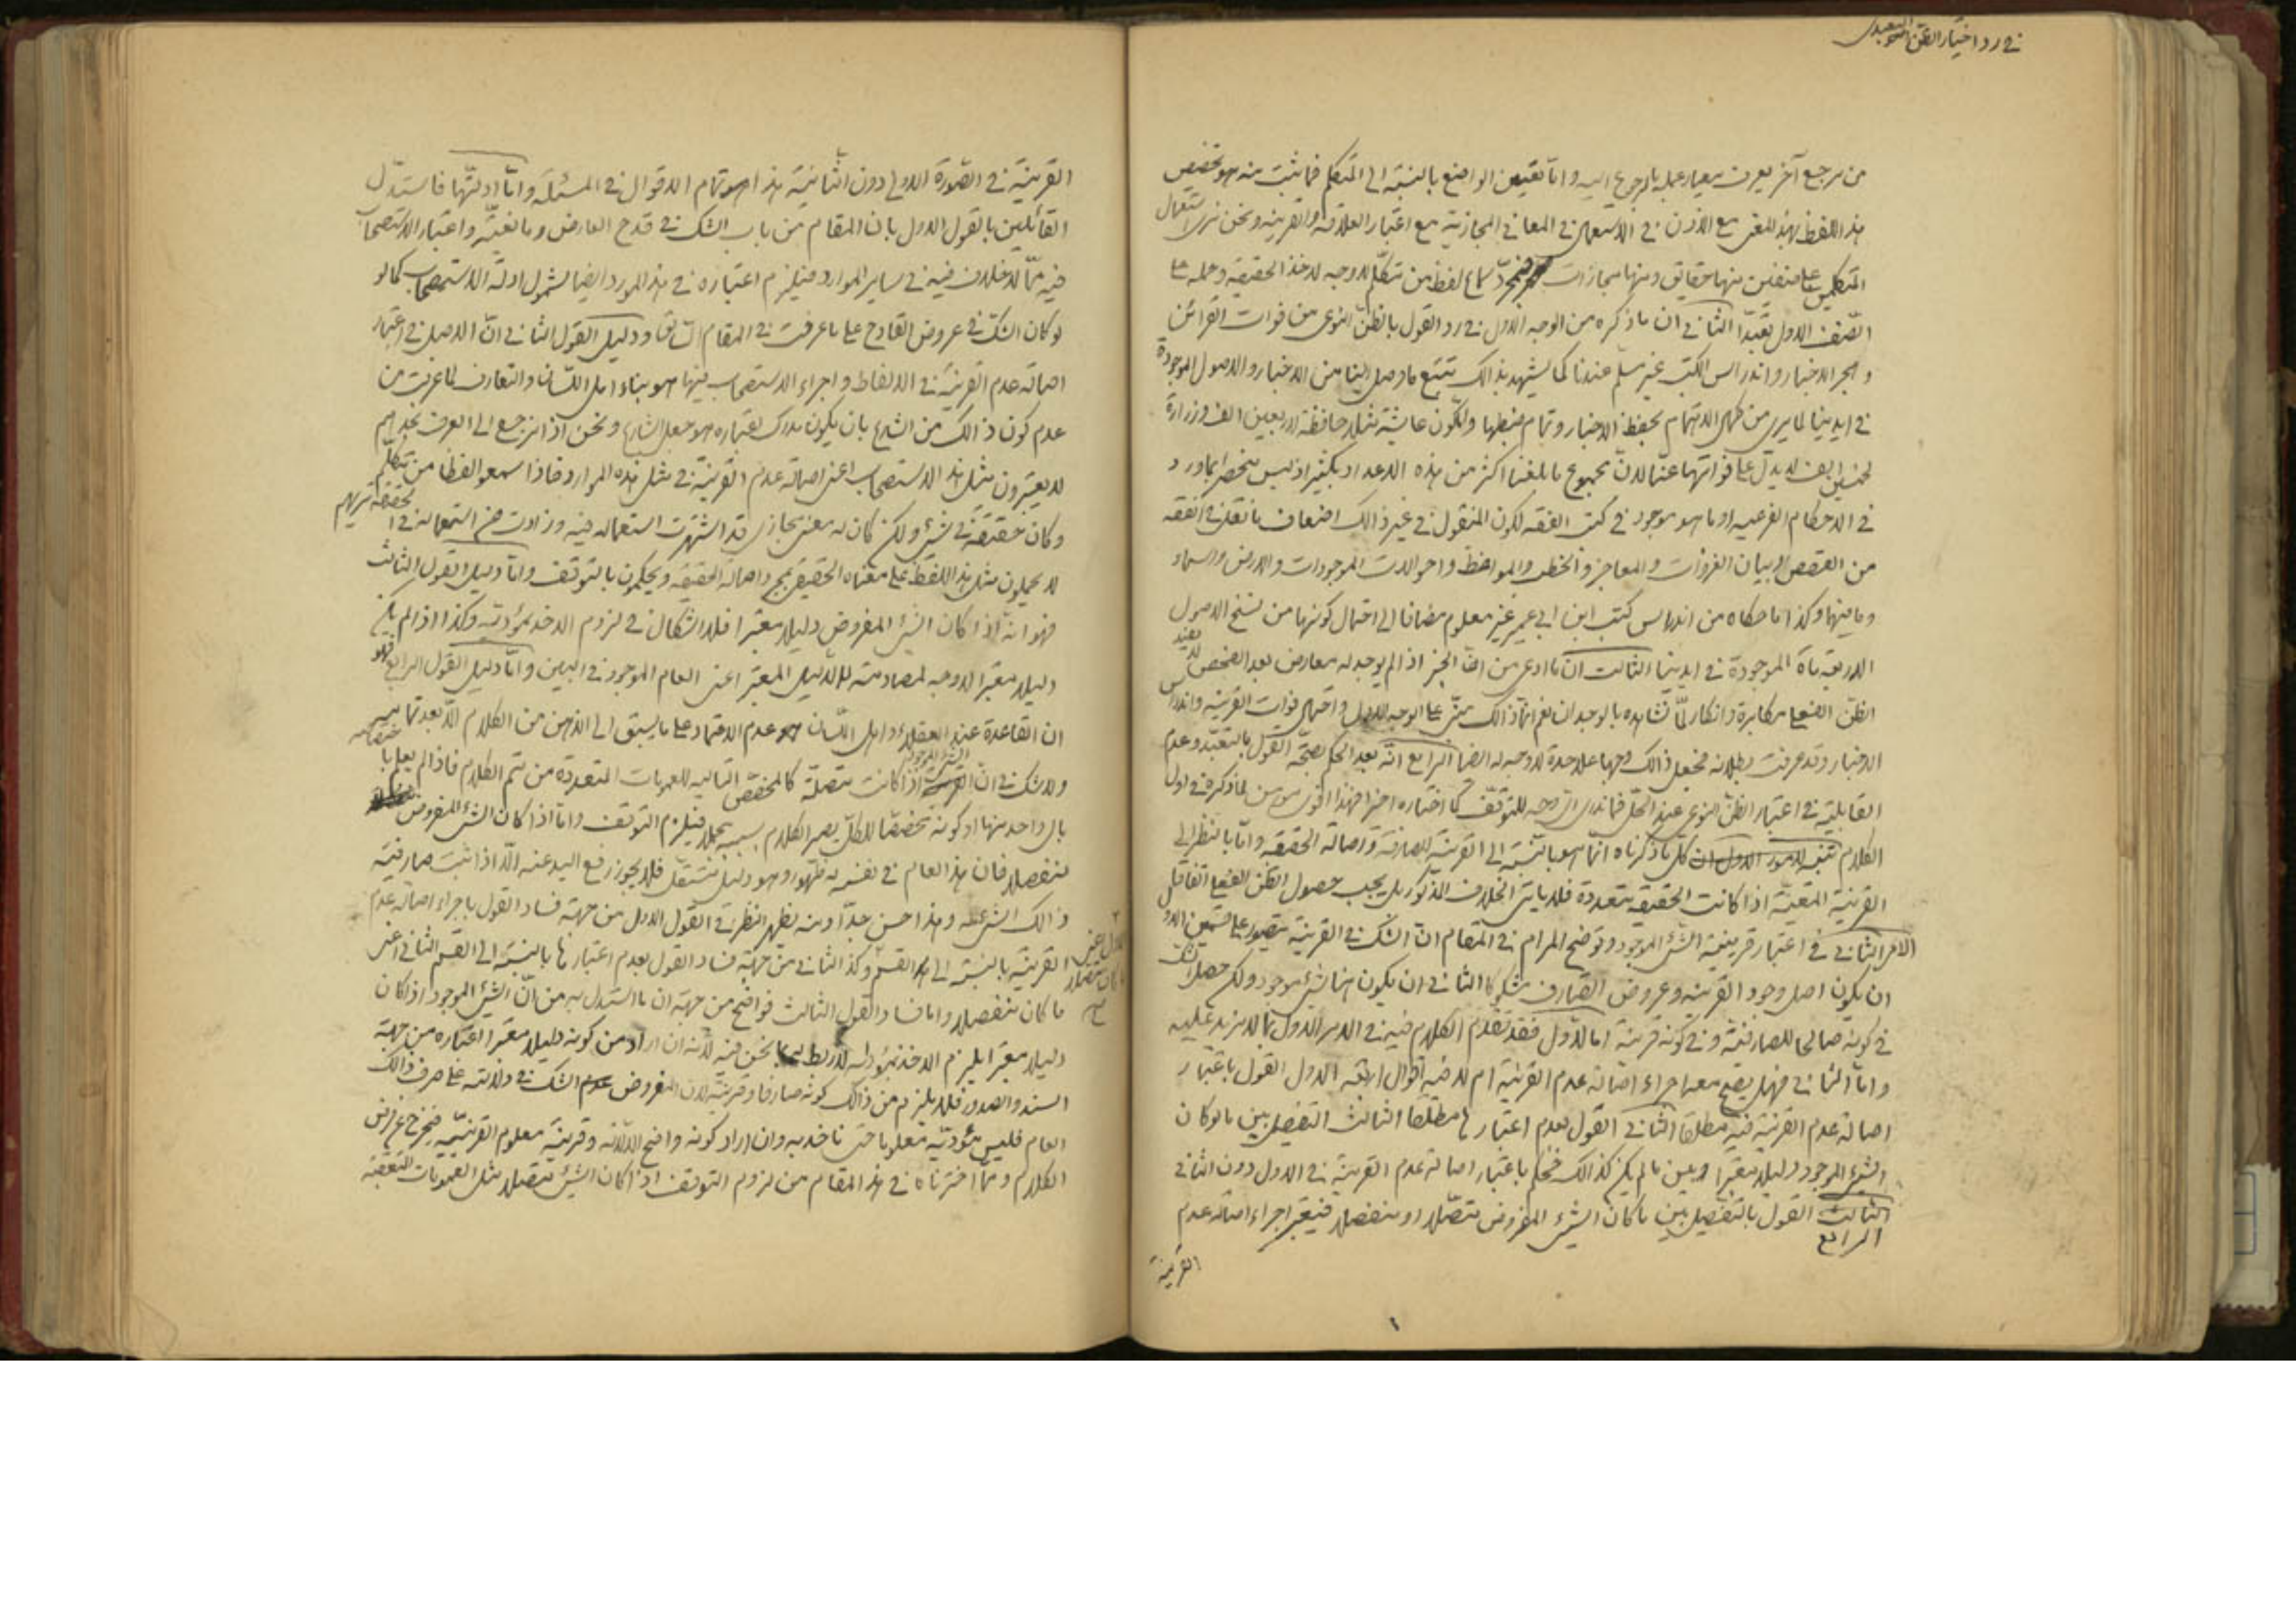 في رد اختيار الظن النوعى
من مرجع آخر يعرف معيار عمله بالرجوع اليه وامّا تعيين الواضع بالنسبة الى المتكلم فما ثبت منه هو تخصيص
هذا اللفظ بهذا المعنى مع الاذن فى الاستعمال فى المعانى المجازية مع اعتبار العلاقة والقرينة ونحن نرى استعمال
المتكلمين على صنفين منها حقايق ومنها مجازات فبمجرّد سماع لفظ من متكلّم لا وجه لاخذ الحقيقة وحمله على
الصّنف الاول تعبّدا الثانى ان ما ذكره من الوجه الاول فى رد القول بالظنّ النوعى من فوات القرائن
وهجر الاخبار واندراس الكتب غير مسلّم عندنا كما يشهد بذالك تتبّع ما وصل الينا من الاخبار والاصول الموجودة
فى ايدينا لما يرى من كمال الاهتمام بحفظ الاخبار وتمام ضبطها والكون عايشة مثلا حافظة اربعين الف وزرارة
لخمسين الف لا يدلّ على فواتها عنّا لانّ مجموع ما بلغنا اكثر من هذه الاعداد بكثير اذ ليس منحصرا بما ورد
فى الاحكام الفرعيه او ما هو موجود فى كتب الفقه لكون المنقول فى غير ذالك اضعاف ما نقل فى الفقه
من القصص وبيان الغزوات والمعاجز والخطب والمواعظ واحوالات الموجودات والارض والسماء
وما بينهما وكذا ما حكاه من اندراس كتب ابن ابى عمير غير معلوم مضافا الى احتمال كونها من نسخ الاصول
الاربعمأة الموجودة فى ايدينا الثالث ان ما ادعى من انّ الخبر اذا لم يوجد له معارض بعد الفحص لا يفيد
الظنّ الفعلى مكابرة وانكار لمّا نشاهده بالوجدان نعم انّما ذالك مبتن على الوجه الاول واحتمال فوات القرينة واندراس
الاخبار وقد عرفت بطلانه فجعل ذالك وجها على حدة لا وجه له ايضا الرابع انّه بعد الحكم بصحّة القول بالتعبّد وعدم
القابلية فى اعتبار الظنّ النوعى عند الكلّ فما ندرى الوجه للتوقّف كما اختاره اخرا فهذا لما ذكره فى اول
الكلام كل ما ذكرناه انّما هو بالنّسبة الى القرينة الصارفة واصالة الحقيقة وامّا بالنظر الى
القرينة المعيّنة اذا كانت الحقيقة متعددة فلا ياتى الخلاف المذكور بل يجب حصول الظنّ الفعلى اتفاقا
الامر الثانى فى اعتبار قرينية الشىء الموجود وتوضيح المرام فى المقام انّ الشك فى القرينة يتصور على قسمين الاول
ان يكون اصل وجود القرينة وعروض الصّارف مشكوكا الثانى ان يكون هنا شىء موجود ولكن حصل الشك
فى كونه صالحا للصارفية وفى كونه قرينة اما الاوّل فقد تقدّم الكلام فيه فى الامر الاول بما لا مزيد عليه
وامّا الثانى فهل يصحّ معه اجراء اصالة عدم القرينة ام لا فيه اقوال اربعة الاول القول باعتبار
اصالة عدم القرينة فيه مطلقا الثانى القول بعدم اعتبارها مطلقا الثالث التفصيل بين ما لو كان
الشىء الموجود دليلا معتبرا وبين ما لم يكن كذالك فيحكم باعتبار اصالة عدم القرينة فى الاول دون الثانى
الثالث القول بالتفصيل بين ما كان الشىء المفروض متصّلا او منفصلا فيعتبر اجراء اصالة عدم
الرابع
القرينة
القرينة فى الصورة الاولى دون الثانية هذا هو تمام الاقوال فى المسئلة وامّا ادلّتها فاستدلّ
القائلين بالقول الاول بان المقام من باب الشك فى قدح العارض ومانعيّته واعتبار الاستصحاب
فيه ممّا لا خلاف فيه فى ساير الموارد فيلزم اعتباره فى هذا المورد ايضا لشمول ادلّة الاستصحاب كما لو
لو كان الشك فى عروض القادح على ما عرفت فى المقام السّابق ودليل القول الثانى انّ الاصل فى اعتبار
اصالة عدم القرينة فى الالفاظ واجراء الاستصحاب فيها هو بناء اهل اللّسان والتعارف لما عرفت من
عدم كون ذالك من الشارع بان يكون مدرك اعتباره هو جعل الشارع ونحن اذا نرجع الى العرف نجد هم
لا يعتبرون مثل هذا الاستصحاب اعنى اصالة عدم القرينة فى مثل هذه الموارد فاذا سمعوا لفظا من متكلّم
وكان حقيقة فى شىء ولكن كان له معنى مجازى قد اشتهرت استعماله فيه وزادت من استعماله فى الحقيقة نريهم
لا يحملون مثل هذا اللفظ على معناه الحقيقى بمجرد اصالة الحقيقة ويحكمون بالتوقّف وامّا دليل القول الثالث
فهو انّه اذا كان الشىء المفروض دليلا معتبرا فلا اشكال فى لزوم الاخذ بمؤدّيه وكذا اذا لم يكن
دليلا معتبرا لا وجه لمصادمته للدليل المعتبر اعنى العام الموجود فى البين وامّا دليل القول الرابع فهو
ان القاعدة عند العقلاء واهل اللّسان عدم الاعتماد على ما يسبق الى الذهن من الكلام الّا بعد تماميته
ولا شك فى انّ الشىء الموجود اذا كانت متصلة كالمخصّص التاليه للعمومات المتعددة من تتمّ الكلام فاذا لم يعلم اختصاصه با
بال واحد منها او كونه مخصّصا للكلّ يصير الكلام بسببه مجملا فيلزم التوقف وامّا اذا كان الشىء المفروض
منفصلا فانّ هذا العام فى نفسه له ظهور وهو دليل مستقل فلا يجوز رفع اليد عنه الّا اذا ثبت صارفية
ذالك الشىء عنه وهذا حسن جدّا ومنه يظهر النظر فى القول الاول من جهة فساد القول باجراء اصالة عدم
القرينة بالنسبة الى القسم الاول اعنى ما كان متصلا وكذا الثانى من جهة فساد القول بعدم اعتبارها بالنسبة الى القسم الثانى اعنى
ما كان منفصلا واما فساد القول الثالث فواضح من جهة ان ما استدل به من انّ الشىء الموجود اذا كان
دليلا معتبرا يلزم الاخذ بمؤدّاه لا ربط له بما نحن فيه لانّه ان اراد من كونه دليلا معتبرا اعتباره من جهة
السند والصدور فلا يلزم من ذالك كونه صارفا وقرينة لان المفروض الشك فى دلالته على صرف ذالك
العام فليس مؤدّيه معلوما حتى ناخذ به وان اراد كونه واضح الدلالة وقرينة معلوم القرينيّة فيخرج عن فرض
الكلام وممّا اخترناه فى هذا المقام من لزوم التوقف اذا كان الشىء متصلا مثل العمومات المتعقبة